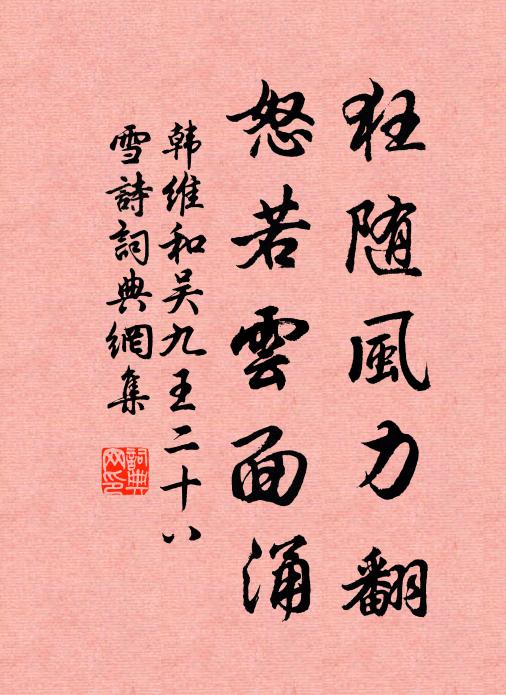 狂随風力翻
怒若雲面涌
韩维和吴九王二十八
雪詩詞典網集
詞典
网印